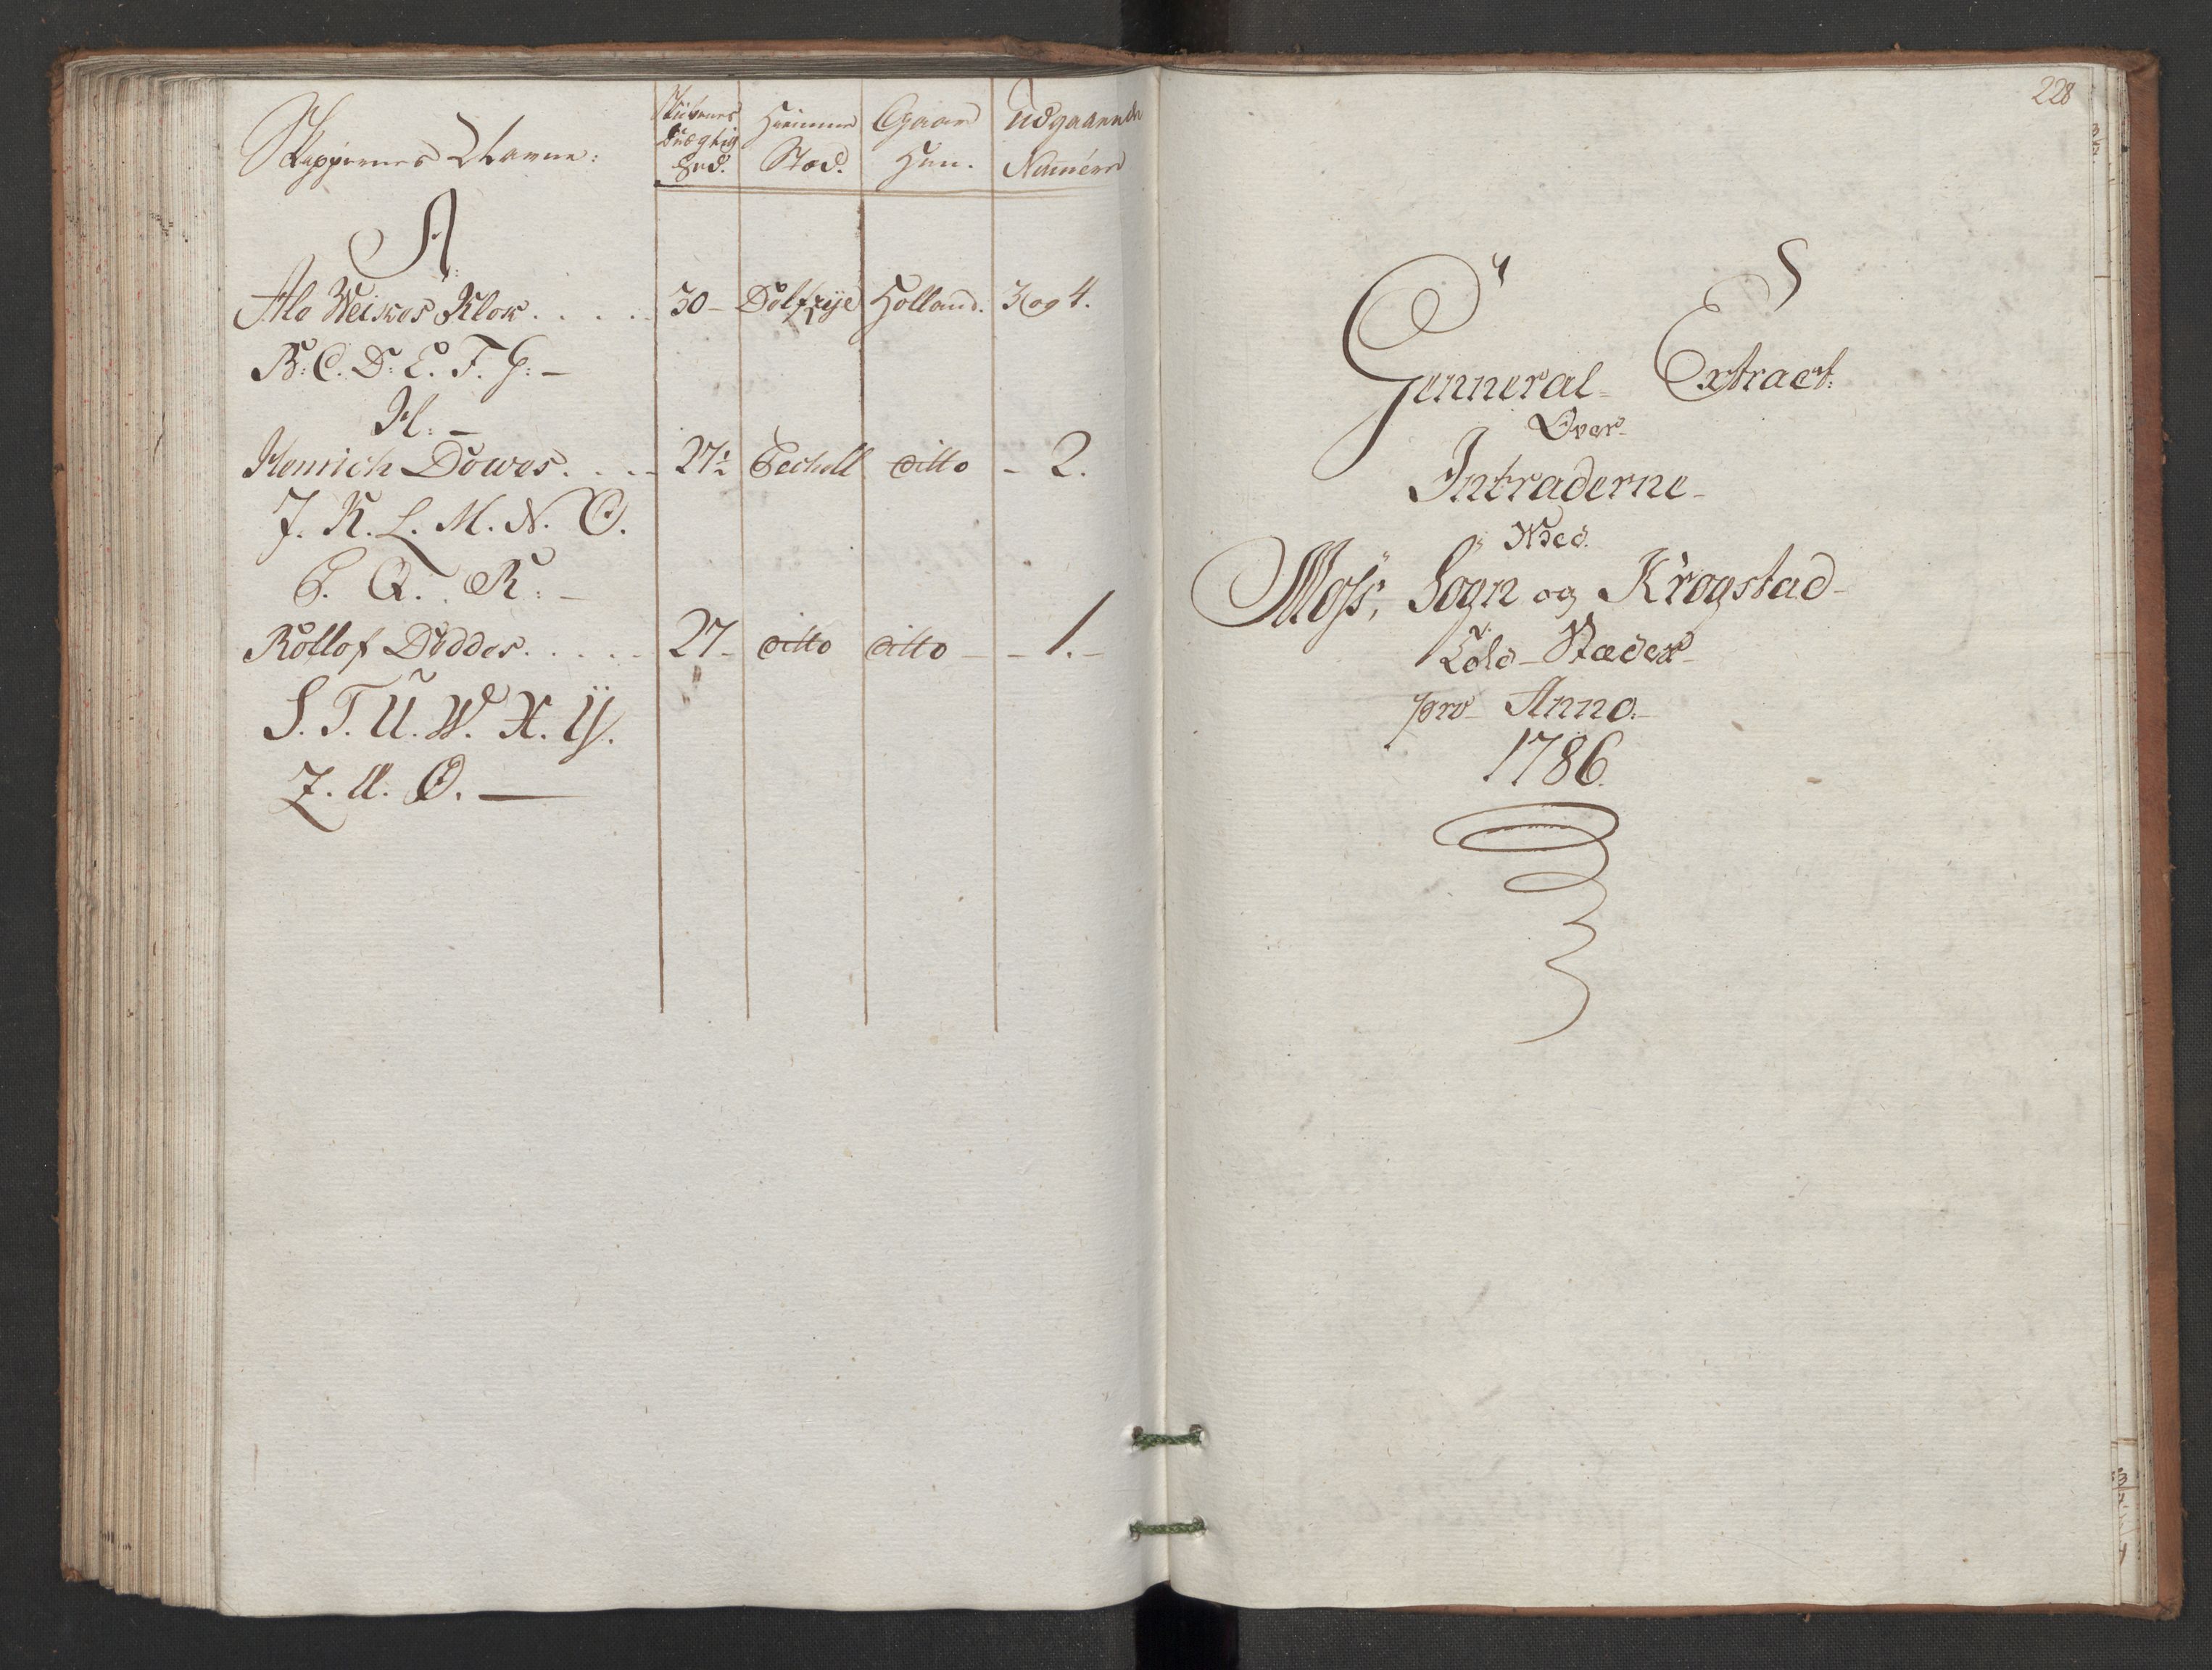 Skippernes Navne:
Skibenes Drægtighed.
Hiemme Stæd.
Gaar Hen.
Udgaaende Numere
A
Ale Weikes Klok . . . . . 30 – Delfzije Holland. 3 og 4.
B. C. D. E. F. G. –
H. –
Henrich Dowes. . . – 27½ Pechell ditto – 2.
J. K. L. M. N. O.
P. Q. R. –
Rollof Doddes. . . . . – 27 – ditto ditto – – 1. –
S. T. U. W. X. Y.
Z. Æ. Ø. —
228
Genneral Extract
Over
Intraderne
Wed
Moss, Sogn og Krogstad
Told-Stæder
pro Anno.
1786.